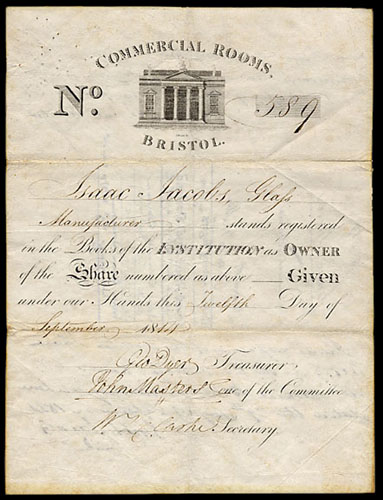 COMMERCIAL ROOMS,
No. 589
BRISTOL.
Isaac Jacobs, Glass
Manufacturer stands registered
in the Books of the INSTITUTION as OWNER
of the Share numbered as above Given
under our Hands this Twelfth Day of
September 1814
Geo Dyer Treasurer
John Masters One of the Committee
Secretary